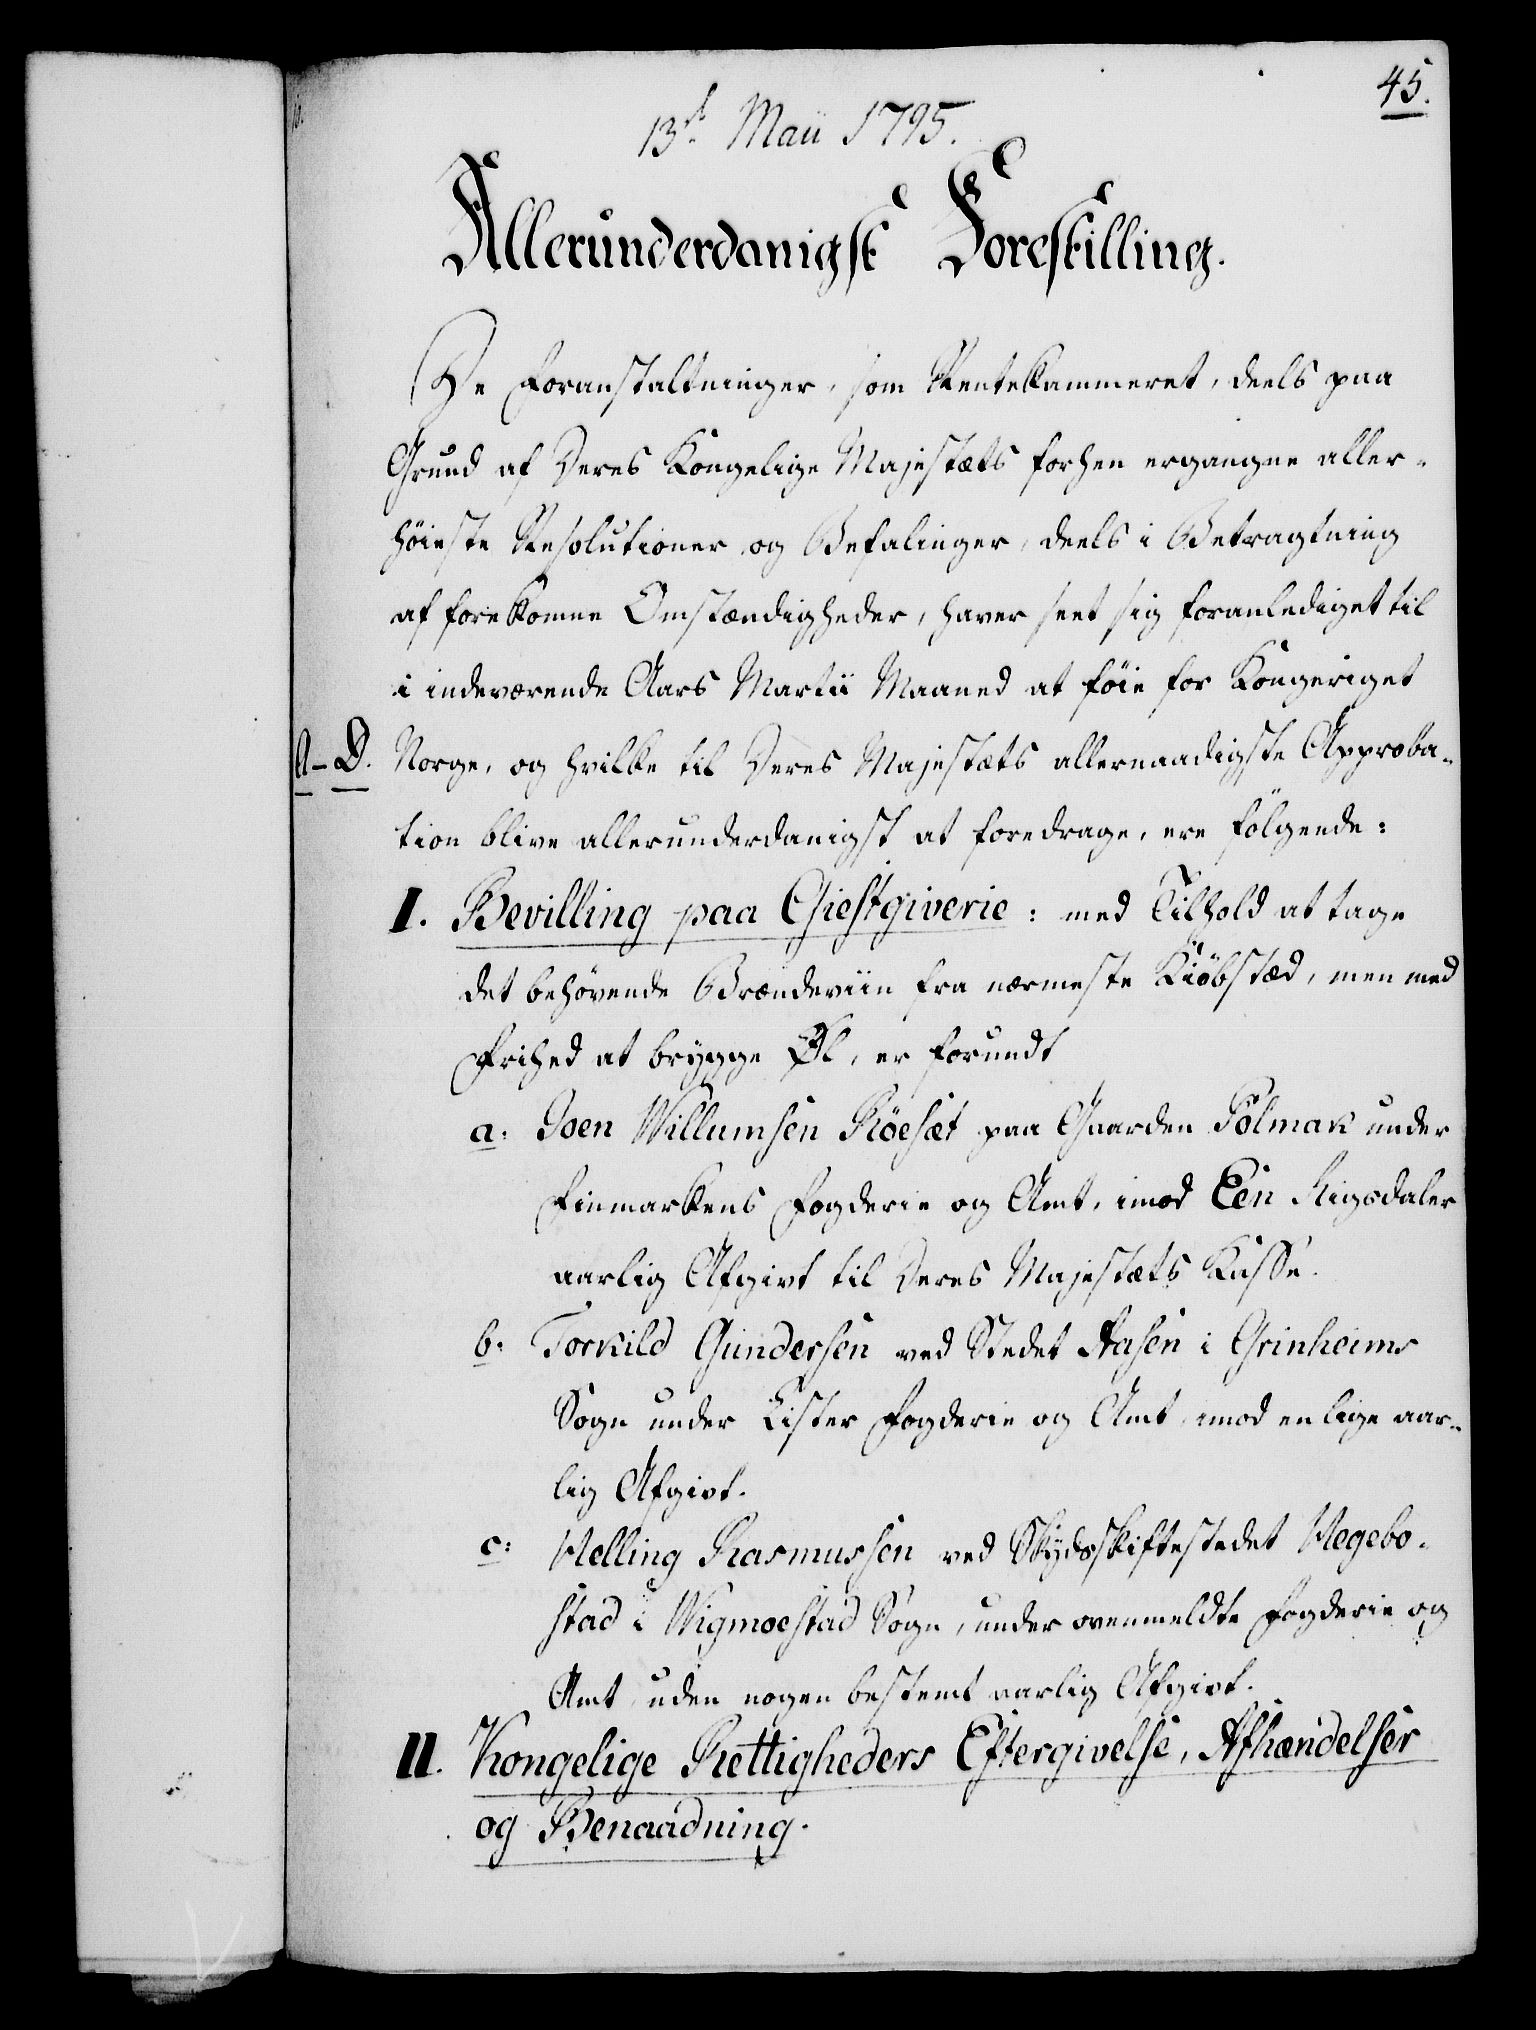 45.
13de Maii 1795.
Allerunderdanigst Forestilling.
De Foranstaltninger, som Rentekammeret, deels paa
Grund af Deres Kongelige Majestæts forhen ergangne aller-
høieste Resolutioner og Befalinger, deels i Betragtning
af forekomne Omstændigheder, haver seet sig foranlediget til
i indeværende Aars Martii Maaned at føie for Kongeriget
A-D. Norge, og hvilke til Deres Majestæts allernaadigste Approba-
tion blive allerunderdanigst at foredrage, ere følgende:
I. Bevilling paa Giestgiverie: med Tilhold at tage
det behøvende Brændeviin fra nærmeste Kiöbstæd, men med
Frihed at brygge Øl, er forundt
a. Joen Willumsen Röesæt paa Gaarden Polmak under
Finmarkens Fogderie og Amt, imod Een Rigsdaler
aarlig Afgivt til Deres Majestæts Kasse.
b. Torkild Gundersen ved Stedet Aasen i Grinheims
Sogn under Lister Fogderie og Amt imod en lige aar-
lig Afgivt.
c: Helling Rasmussen ved Skydsskiftestedet Hegebo-
stad i Wigmoestad Sogn, under ovenmeldte Fogderie og
Amt uden nogen bestemt aarlig Afgivt.
II. Kongelige Rettigheders Eftergivelse, Afhændelser
og Benaadning.